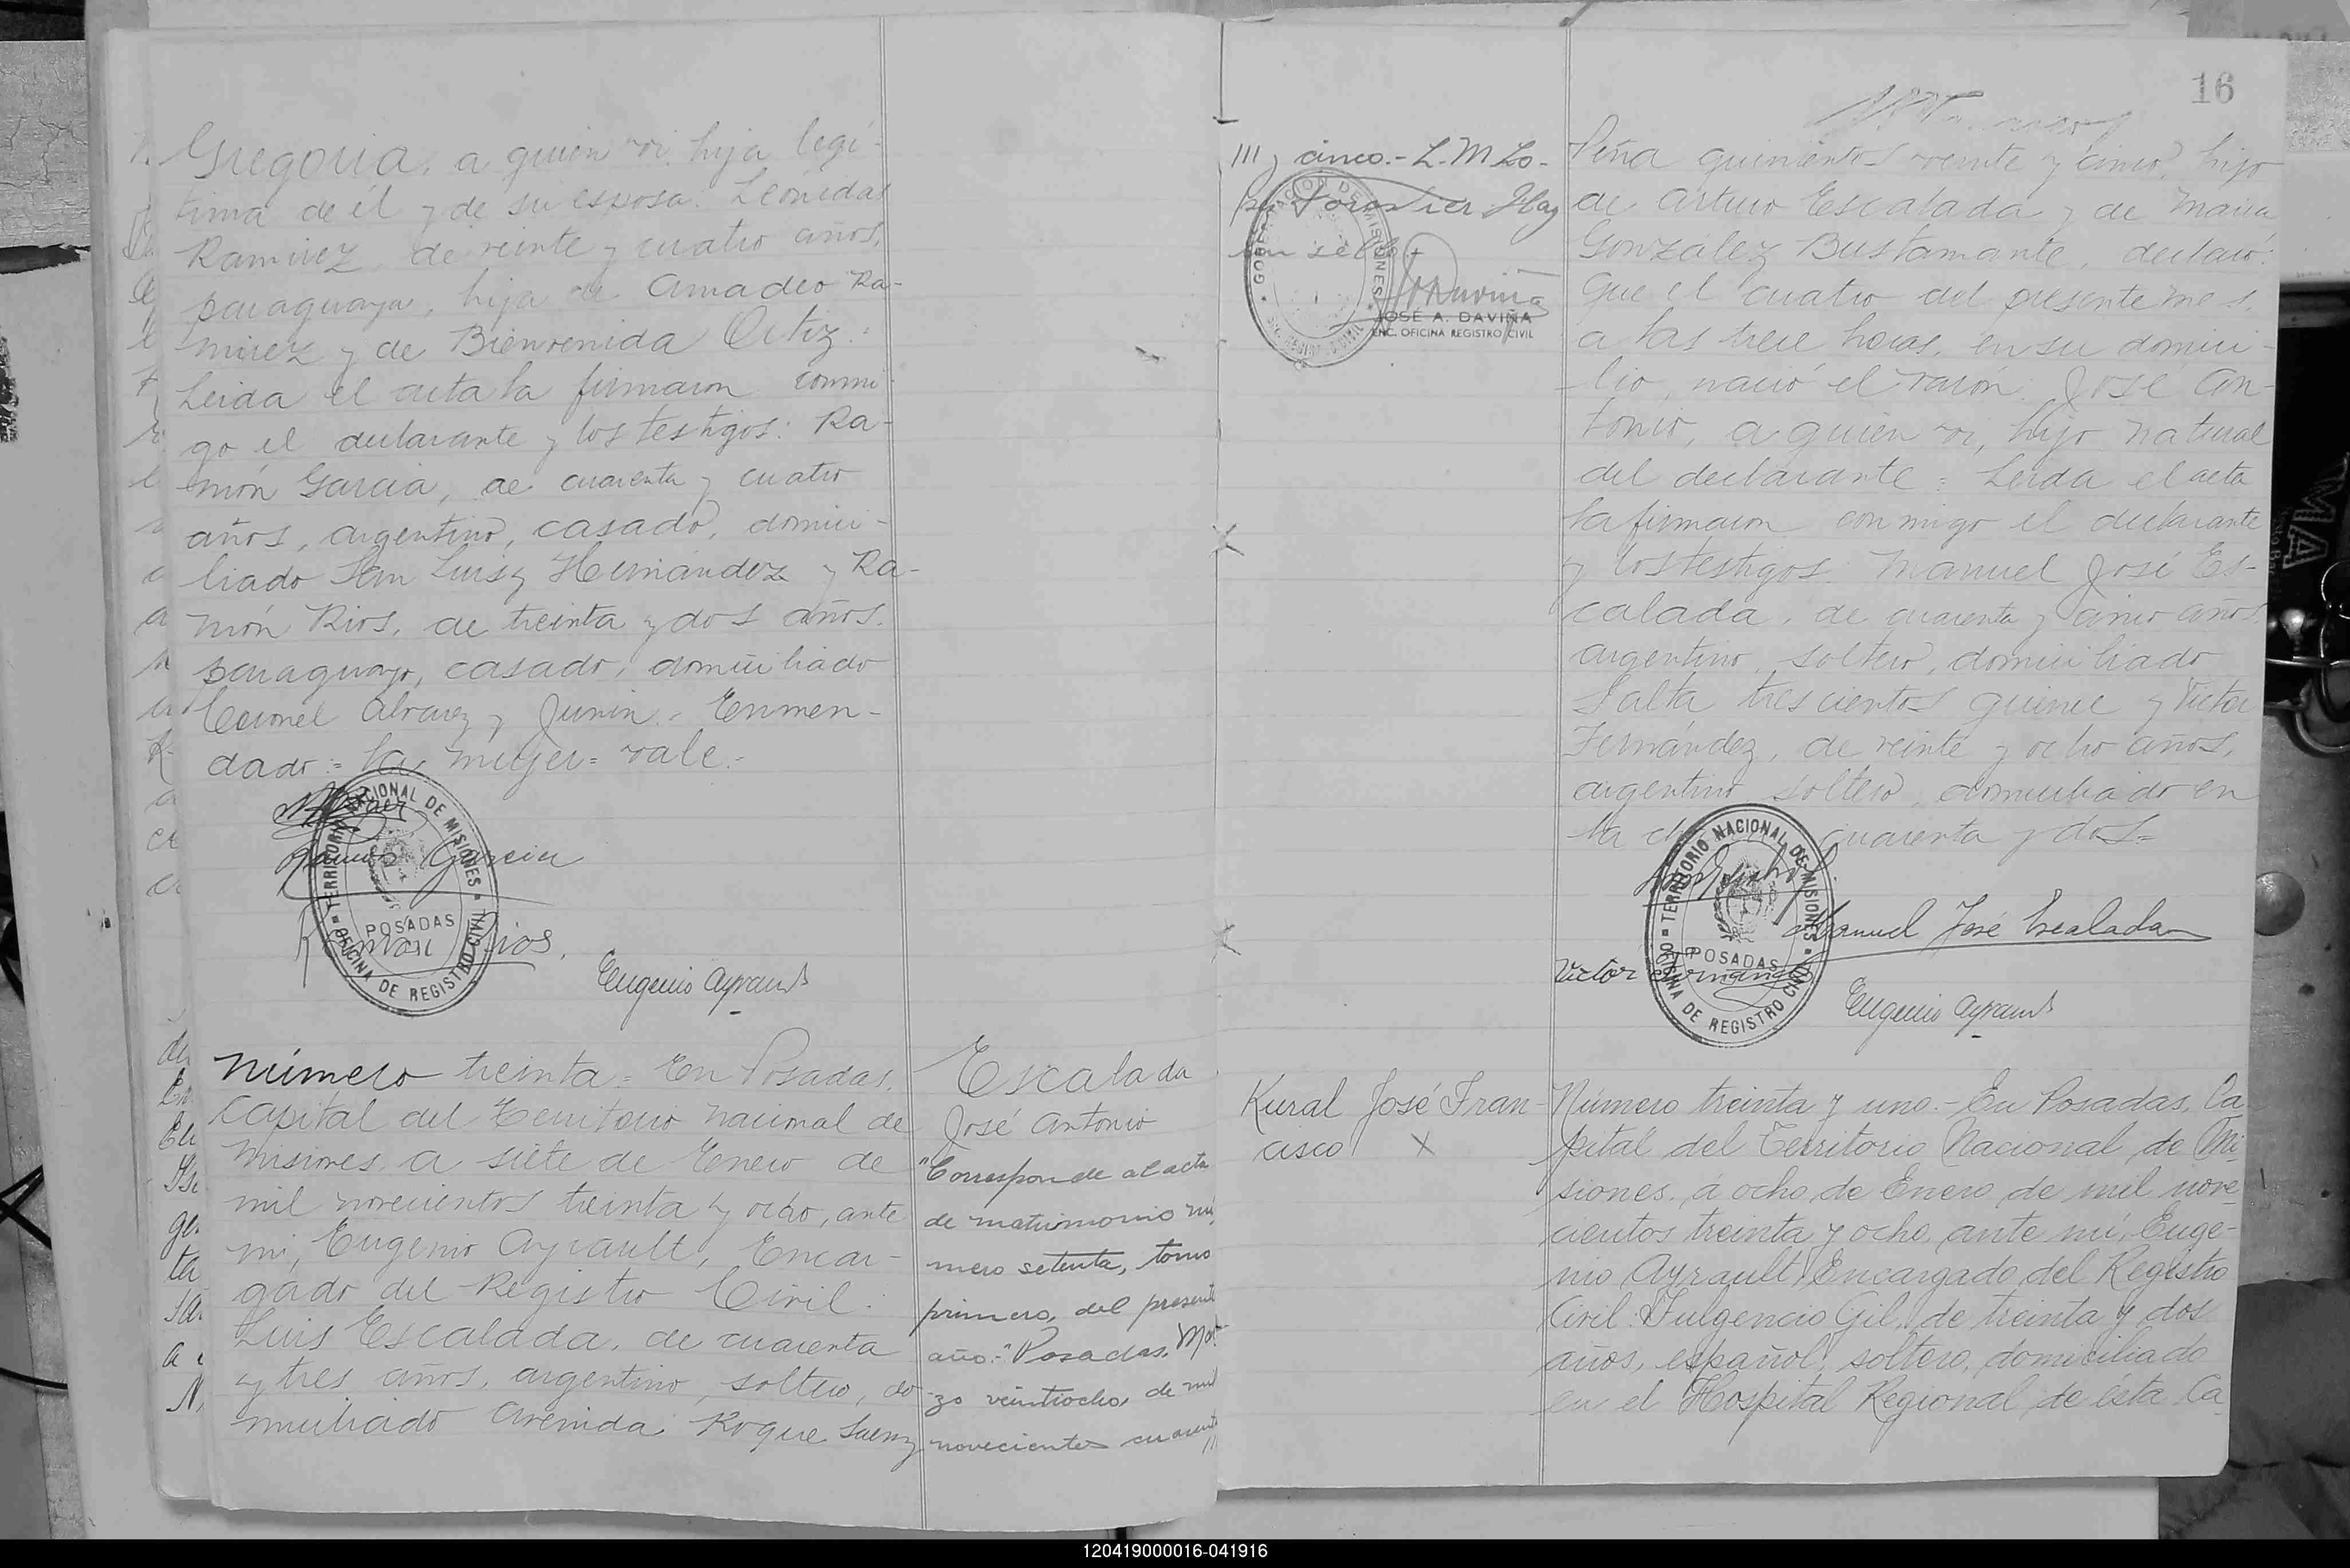 Gregoria, a quien vi, hija legí-
tima de él y de su esposa: Leónidas
Ramirez, de veinte y cuatro años,
paraguaya, hija de Amadeo Ra-
mirez y de Bienvenida Ortiz.-
Leida el acta la firmaron conmi-
go el declarante y los testigos: Ra-
món Garcia, de cuarenta y cuatro
años, argentino, casado, domici-
liado San Luis y Hernández y Ra-
món Rios, de treinta y dos años,
paraguayo, casado, domiciliado
Coronel Alvarez y Junin.- Enmen-
dado:= la, mujer= vale.-
Ramon Garcia
Ramon Rios.
Eugenio Ayrault
TERRITORIO NACIONAL DE MISIONES
POSADAS
OFICINA DE REGISTRO CIVIL
Número treinta= En Posadas,
Capital del Territorio Nacional de
Misiones, a siete de Enero de
mil novecientos treinta y ocho, ante
mi, Eugenio Ayrault, Encar-
gado del Registro Civil:
Luis Escalada, de cuarenta
y tres años, argentino, soltero, do-
miciliado Avenida Roque Saenz
Escalada
José Antonio
"Corresponde al acta
de matrimonio nú-
mero setenta, tomo
primero, del presente
año.-" Posadas, Mar-
zo veintiocho, de mil
novecientos cuarenta
///
16
/// y cinco.- L. M. Lo-
Hay
un sello
GOBERNACION DE MISIONES
JOSÉ A. DAVIÑA
ENC. OFICINA REGISTRO CIVIL
Peña quinientos veinte y cinco, hijo
de Arturo Escalada y de Maria
González Bustamante, declaró:
Que el cuatro del presente mes,
a las trece horas, en su domici-
lio, nació el varón: José An-
tonio, a quien vi, hijo natural
del declarante= Leida el acta
la firmaron conmigo el declarante
y los testigos: Manuel José Es-
calada, de cuarenta y cinco años,
argentino, soltero, domiciliado
Salta trescientos quince y Victor
Fernández, de veinte y ocho años,
argentino soltero, domiciliado en
la cuarenta y dos=
Manuel José Escalada
Victor Fernandez
Eugenio Ayrault
TERRITORIO NACIONAL DE MISIONES
POSADAS
OFICINA DE REGISTRO CIVIL
Kural José Fran-
cisco X
Número treinta y uno.- En Posadas, Ca-
pital del Territorio Nacional de Mi-
siones, á ocho de Enero de mil nove-
cientos treinta y ocho, ante mí, Euge-
nio Ayrault, Encargado del Registro
Civil: Fulgencio Gil, de treinta y dos
años, español, soltero, domiciliado
en el Hospital Regional de ésta Ca-
120419000016-041916